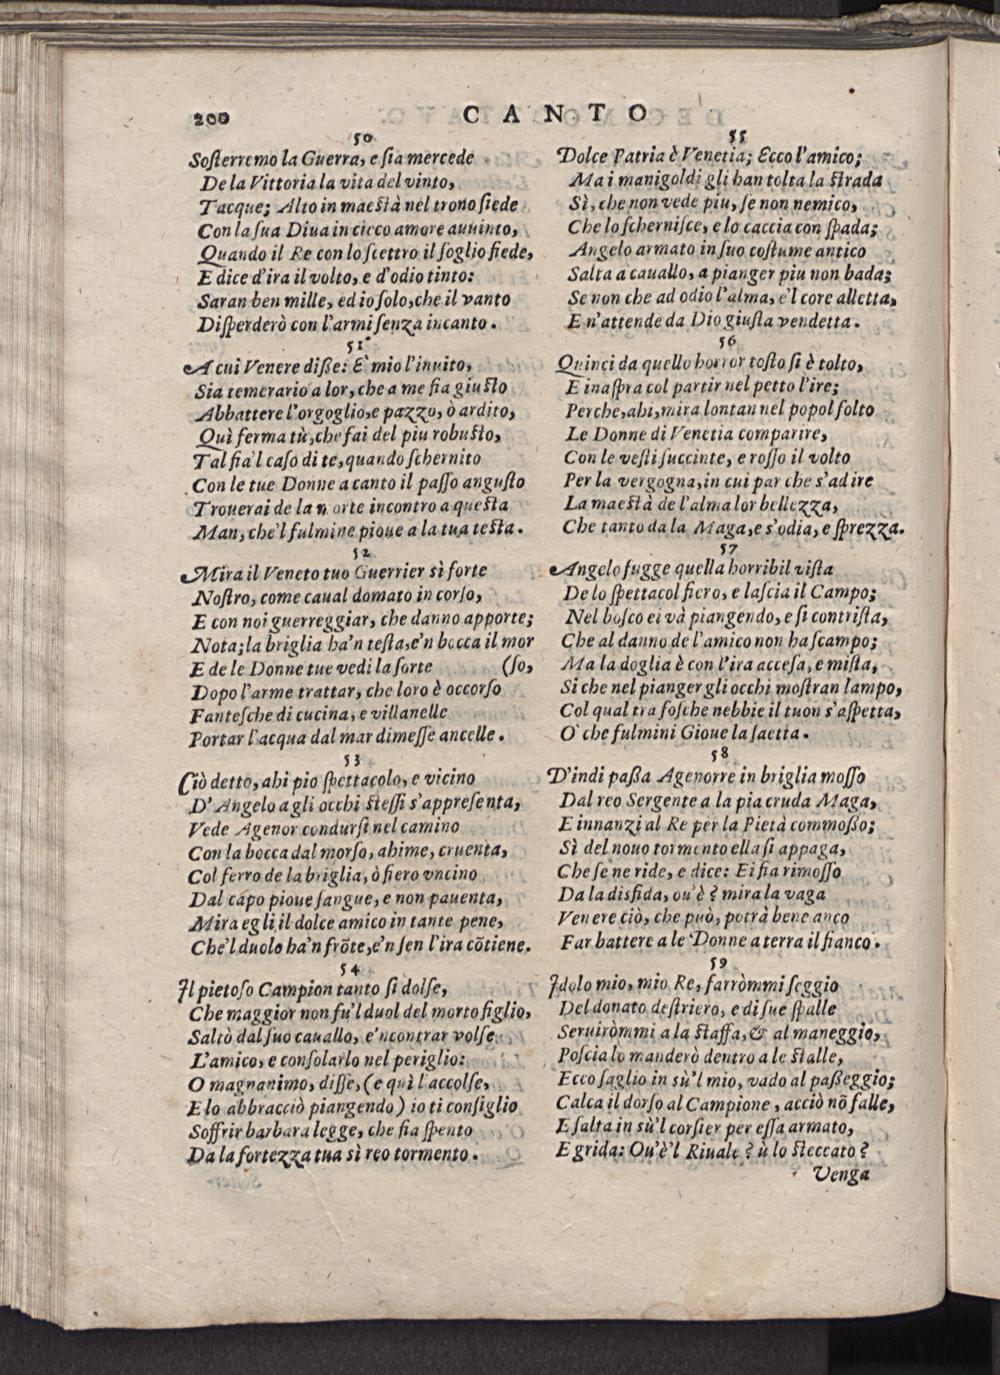 200
CANTO
50
Soſterremo la Guerra, e ſia mercede
De la Vittoria la vita del vinto,
Tacque; Alto in maeſtà nel trono ſiede
Con la ſua Diua in cieco amore auuinto,
Quando il Re con lo ſcettro il ſoglio fiede,
E dice d'ira il volto, e d'odio tinto:
Saran ben mille, ed io ſolo, che il vanto
Diſperderò con l'armi ſenza incanto.
51
A cui Venere diſſe: E' mio l'inuito,
Sia temerario a lor, che a me fia giuſto
Abbattere l'orgoglio, e pazzo, ò ardito,
Quì ferma tù, che fai del piu robuſto,
Tal fia'l caſo di te, quando ſchernito
Con le tue Donne a canto il paſſo anguſto
Trouerai de la morte incontro a queſta
Man, che'l fulmine pioue a la tua teſta.
52
Mira il Veneto tuo Guerrier sì forte
Noſtro, come caual domato in corſo,
E con noi guerreggiar, che danno apporte;
Nota; la briglia ha'n teſta, e'n bocca il mor
E de le Donne tue vedi la ſorte (ſo,
Dopo l'arme trattar, che loro è occorſo
Fanteſche di cucina, e villanelle
Portar l'acqua dal mar dimeſſe ancelle.
53
Ciò detto, ahi pio ſpettacolo, e vicino
D'Angelo a gli occhi ſteſſi s'appreſenta,
Vede Agenor condurſi nel camino
Con la bocca dal morſo, ahime, cruenta,
Col ferro de la briglia, ò fiero vncino
Dal capo pioue ſangue, e non pauenta,
Mira egli il dolce amico in tante pene,
Che'l duolo ha'n frōte, e'n ſen l'ira cōtiene.
54
Il pietoſo Campion tanto ſi dolſe,
Che maggior non fu'l duol del morto figlio,
Saltò dal ſuo cauallo, e'ncontrar volſe
L'amico, e conſolarlo nel periglio:
O magnanimo, diſſe, (e quì l'accolſe,
E lo abbracciò piangendo) io ti conſiglio
Soffrir barbara legge, che fia ſpento
Da la fortezza tua sì reo tormento.
55
Dolce Patria è Venetia; Ecco l'amico;
Ma i manigoldi gli han tolta la ſtrada
Sì, che non vede piu, ſe non nemico,
Che lo ſcherniſce, e lo caccia con ſpada;
Angelo armato in ſuo coſtume antico
Salta a cauallo, a pianger piu non bada;
Se non che ad odio l'alma, e'l core alletta,
E n'attende da Dio giuſta vendetta.
56
Quinci da quello horror toſto ſi è tolto,
E inaſpra col partir nel petto l'ire;
Perche, ahi, mira lontan nel popol folto
Le Donne di Venetia comparire,
Con le veſti ſuccinte, e roſſo il volto
Per la vergogna, in cui par che s'adire
La maeſtà de l'alma lor bellezza,
Che tanto da la Maga, e s'odia, e ſprezza.
57
Angelo fugge quella horribil viſta
De lo ſpettacol fiero, e laſcia il Campo;
Nel boſco ei và piangendo, e ſi contriſta,
Che al danno de l'amico non ha ſcampo;
Ma la doglia è con l'ira acceſa, e miſta,
Si che nel pianger gli occhi moſtran lampo,
Col qual tra foſche nebbie il tuon s'aſpetta,
O' che fulmini Gioue la ſaetta.
58
D'indi paſſa Agenorre in briglia moſſo
Dal reo Sergente a la pia cruda Maga,
E innanzi al Re per la Pietà commoſſo;
Sì del nouo tormento ella ſi appaga,
Che ſe ne ride, e dice: Ei fia rimoſſo
Da la disfida, ou'è? mira la vaga
Venere ciò, che può, potrà bene anco
Far battere a le Donne a terra il fianco.
59
Idolo mio, mio Re, farròmmi ſeggio
Del donato deſtriero, e di ſue ſpalle
Seruiròmmi a la ſtaffa, & al maneggio,
Poſcia lo manderò dentro a le ſtalle,
Ecco ſaglio in sù'l mio, vado al paſſeggio;
Calca il dorſo al Campione, acciò nō falle,
E ſalta in sù'l corſier per eſſa armato,
E grida: Ou'è'l Riuale? ù lo ſteccato?
Venga